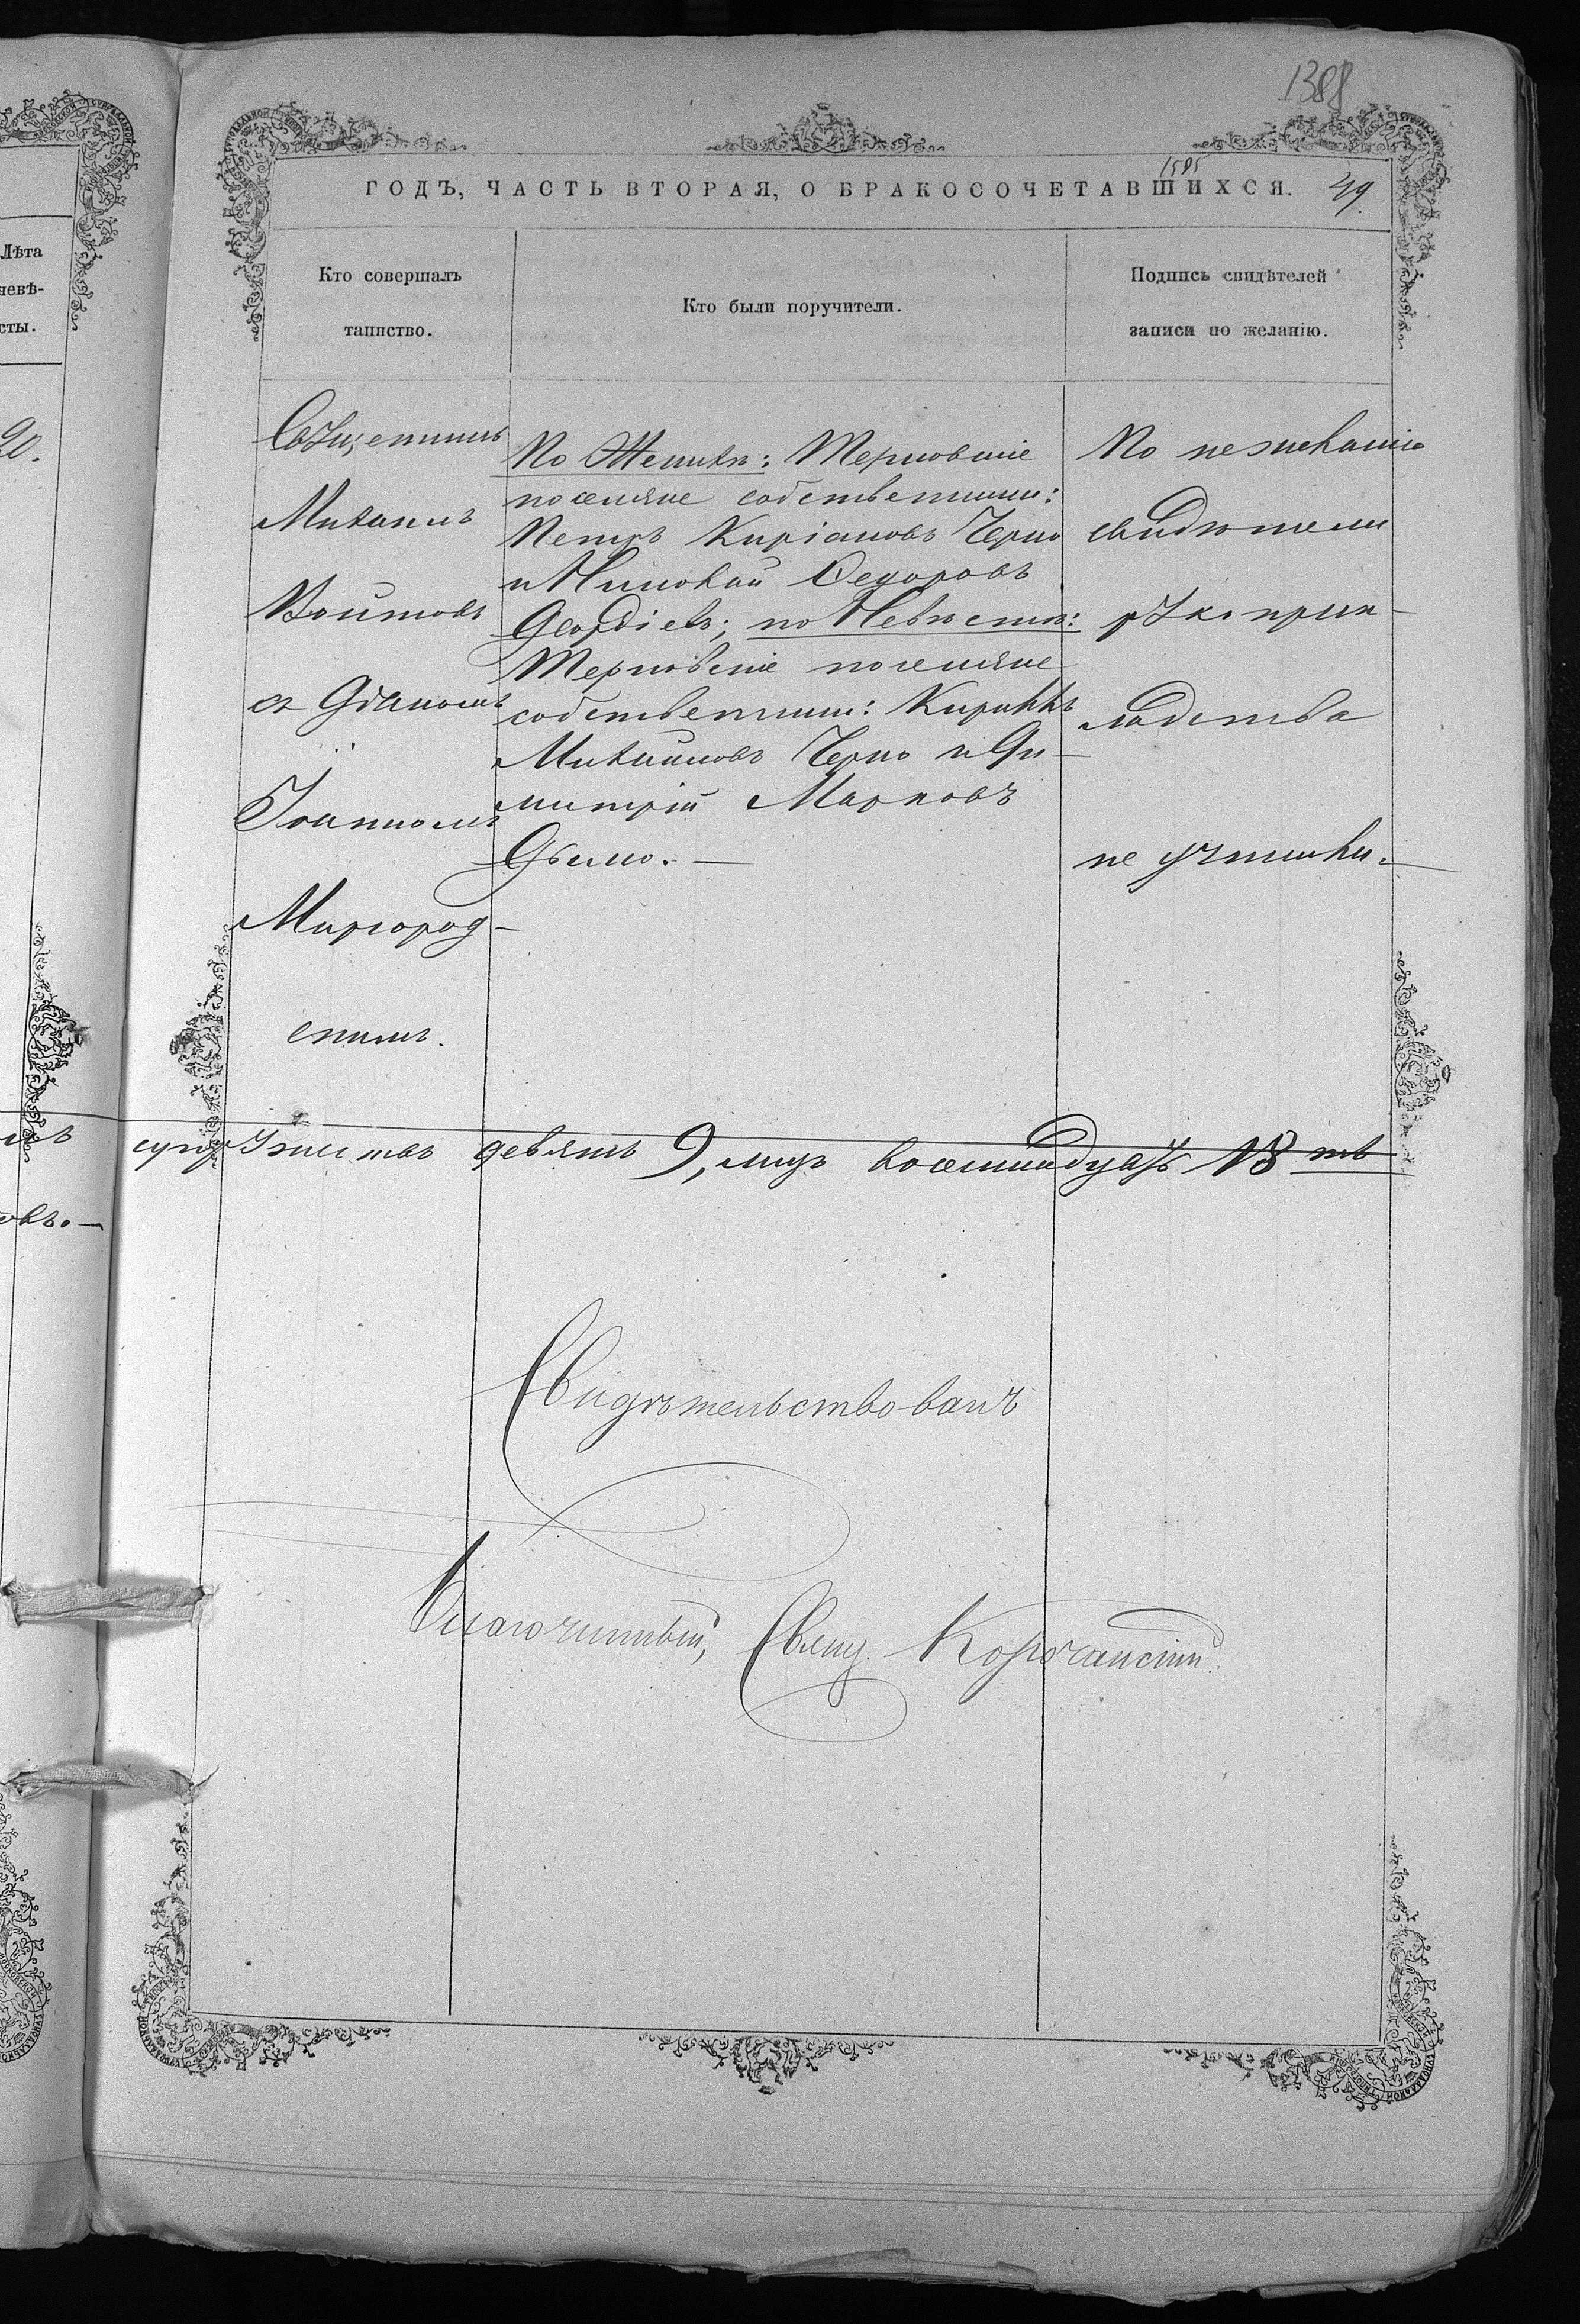 1388
1595
ГОДЪ, ЧАСТЬ ВТОРАЯ, О БРАКОСОЧЕТАВШИХСЯ.
49.
Лѣта
невѣ-
сты.
20.
Кто совершалъ
таинство.
Кто были поручители.
Подпись свидѣтелей
записи по желанію.
Священникъ
Михаилъ
Войтовъ
съ Діакономъ
Іоанномъ
Миргород-
скимъ.
По Женихѣ: Терновскіе
поселяне собственники:
Петръ Киріановъ Черно
и Николай Ѳедоровъ
Георгіевъ; по Невѣстѣ:
Терновскіе поселяне
собственники: Кириллъ
Михайловъ Черно и Ди-
митрій Марковъ
Дымо.—
По нежеланію
свидѣтели
рукоприк-
ладства
не учинили.
супружествъ девять 9, лицъ восемнадцать 18 ть
овъ.—
Свидѣтельствовалъ
Благочинный, Свящ.